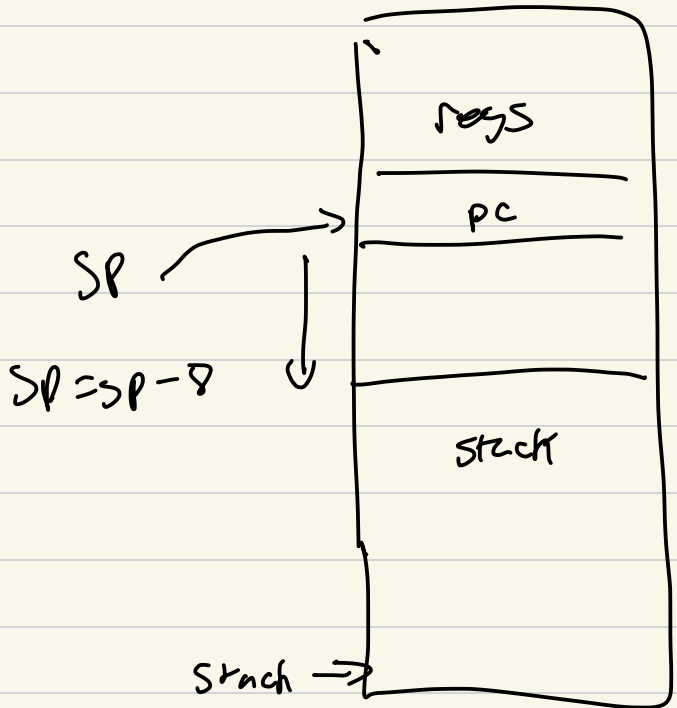 regs
pc
SP
SP = SP - 8
stack
stack →